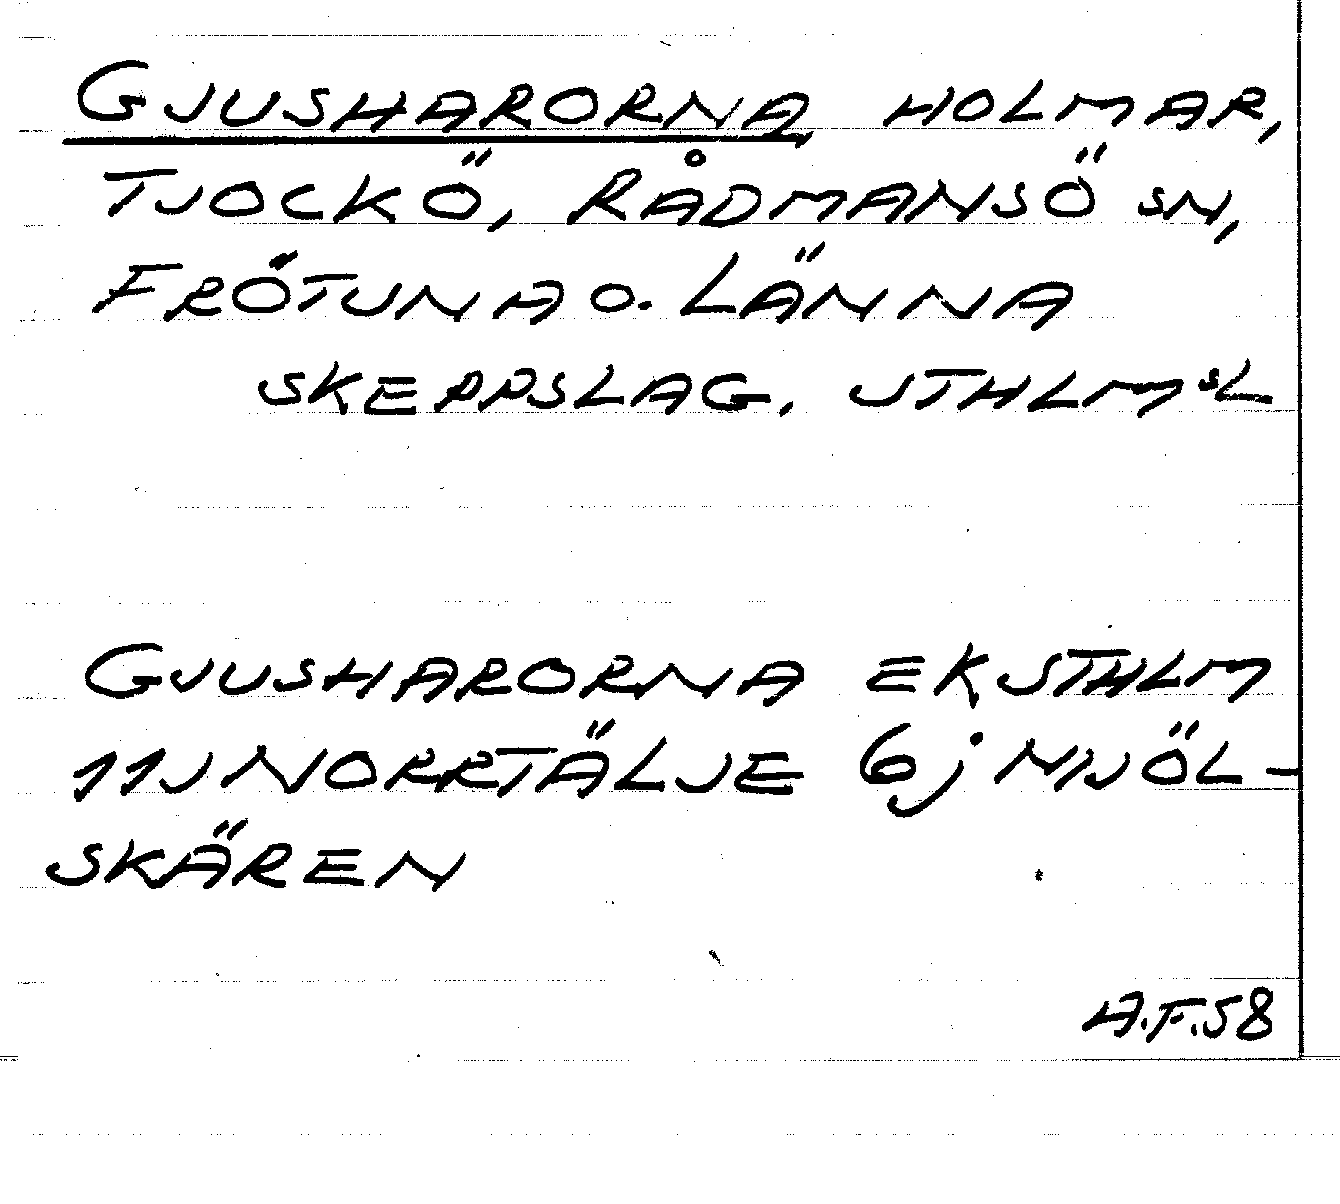 GJUSHARORNA HOLMAR,
TJOCKÖ, RÅDMANSÖ SN,
FRÖTUNA O. LÄNNA
SKEPPSLAG, STHLMSL
GJUSHARORNA EKSTHLM
11J NORRTÄLJE 6j MJÖL-
SKÄREN
A.F.58